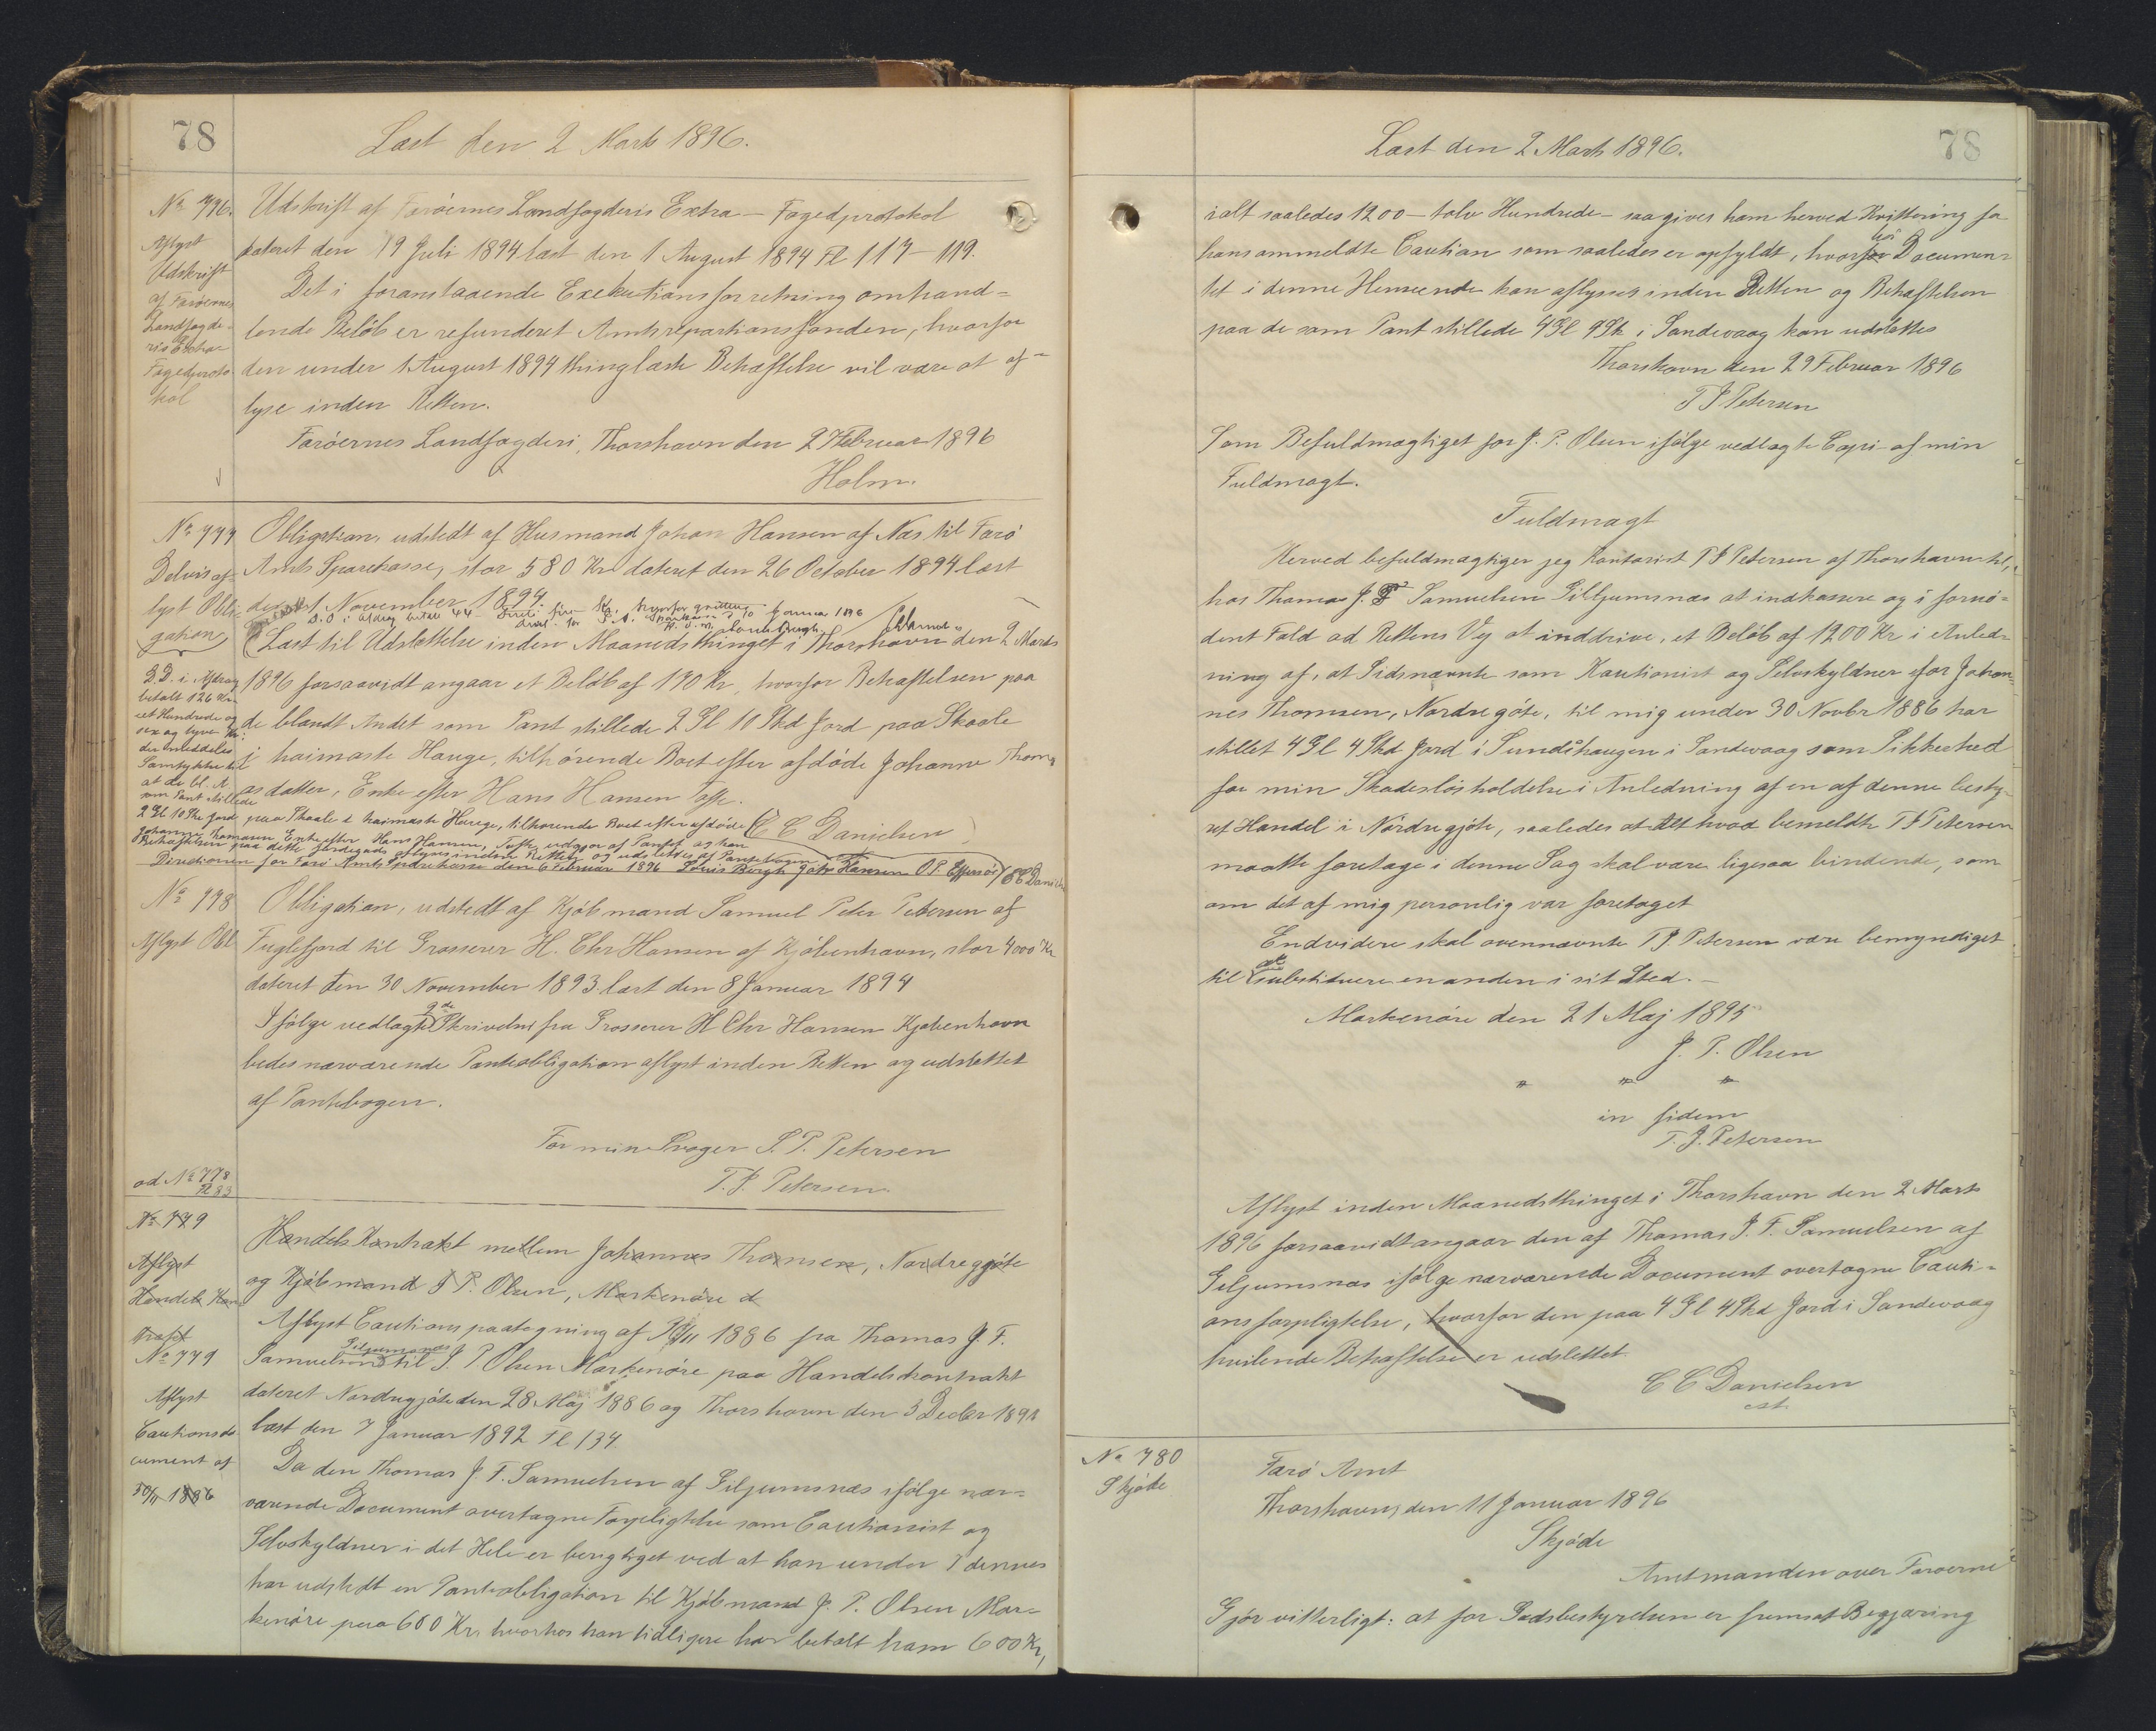 78
Læst den 2 Marts 1896.
No 776.
Aflyst
Udskrift
af Færøernes
Landfogde-
ris Extra-
Fogedproto-
kol
Udskrift af Færøernes Landfogderis Extra-Fogedprotokol
dateret den 19 Juli 1894 læst den 1 August 1894 Fl 117-119.
Det i foranstaaende Exekutionsforretning omhand-
lende Beløb er refunderet Amtsrepartionsfonden, hvorfor
den under 1 August 1894 thinglæste Behæftelse vil være at af-
lyse inden Retten.
Færøernes Landfogderi, Thorshavn den 27 Februar 1896
Holm.
No 777
Delvis af-
lyst Obli-
gation
Obligation, udstedt af Husmand Johan Hansen af Næs til Færø
Amts Sparekasse, stor 580 Kr dateret den 26 October 1894 læst
den 1 November 1894.
Læst til Udslettelse inden Maanedsthinget i Thorshavn den 2 Marts
1896 forsaavidt angaar et Beløb af 170 Kr, hvorfor Behæftelsen paa
de blandt Andet som Pant stillede 2 Gl 10 Skd Jord paa Skaale
i haimaste Hauge, tilhørende Boet efter afdøde Johanne Thom
as datter, Enke efter Hans Hansen Tofte.
C C Danielsen
D.D. i Afdrag
betalt 126 Kr
et Hundrede og
sex og tyve Kr.
der meddeles
Samtykke til
at de bl. A.
som Pant stillede
2 Gl 10 Skd Jord paa Skaale i haimaste Hauge, tilhørende Boet efter afdøde
Johanne Thomasen Enke efter Hans Hansen, Tofte, udgaar af Pantet og kan
Behæftelsen paa dette Jordegods aflyses inden Retten og udslettes af Pantebogen
Directionen for Færø Amts Sparekasse den 6 Februar 1896 Louis Bergh Johs Hansen O.P. Effersøe / CC Daniels
No 778
Aflyst Obl
Obligation, udstedt af Kjøbmand Samuel Peter Petersen af
Fuglefjord til Grosserer H. Chr Hansen af Kjøbenhavn, stor 4000 Kr
dateret den 30 November 1893 læst den 8 Januar 1894
Ifølge vedlagte 2de Skrivelser fra Grosserer H Chr Hansen Kjøbenhavn
bedes nærværende Panteobligation aflyst inden Retten og udslettet
af Pantebogen.
For min Svoger S. P. Petersen
T. J. Petersen
ad No 778
Fl 83
No 779
Aflyst
Handels Kon
trakt
Handels Kontrakt mellem Johannes Thomsen, Nordregøte
og Kjøbmand J P. Olsen, Markenøre d
No 779
Aflyst
Cautionsdo
cument af
30/11 1886
Aflyst Cautions paategning af 30/11 1886 fra Thomas J. F.
Samuelsen Giljumsnæs til J. P Olsen Markenøre paa Handelskontrakt
dateret Nordregjøte den 28 Maj 1886 og Thorshavn den 3 Decbr 1891
læst den 7 Januar 1892 Fl 134.
Da den Thomas J. F. Samuelsen af Giljumsnæs ifølge nær-
værende Document overtagne Forpligtelse som Cautionist og
Selvskyldner i det Hele er berigtiget ved at han under 7 dennes
har udstedt en Panteobligation til Kjøbmand J. P. Olsen Mar-
kenøre paa 600 Kr, hvorhos han tidligere har betalt ham 600 Kr,
78
Læst den 2 Marts 1896.
ialt saaledes 1200 - tolv Hundrede - saa gives ham herved Kvittering for
hans ommeldte Caution som saaledes er opfyldt, hvorfor Documen-
tet i denne Henseende kan aflyses inden Retten og Behæftelsen
paa de som Pant stillede 4 Gl 4 Sk i Sandevaag kan udslettes
Thorshavn den 29 Februar 1896
T J Petersen
Som Befuldmægtiget for J. P. Olsen ifølge vedlagte Copi af min
Fuldmagt.
Fuldmagt
Herved befuldmægtiger jeg Kontorist T J Petersen af Thorshavn til,
hos Thomas J. F Samuelsen Gilljumsnæs at indkassere og i fornø-
dent Fald ad Rettens Vej at inddrive, et Beløb af 1200 Kr i Anled-
ning af, at Sidsnævnte som Kautionist og Selvskyldner for Johan-
nes Thomsen, Nordregøte, til mig under 30 Novbr 1886 har
stillet 4 Gl 4 Skd Jord i Sundshaugen i Sandevaag som Sikkerhed
for min Skadesløsholdelse i Anledning af en af denne besty-
ret Handel i Nordregjøte, saaledes at Alt hvad bemeldte T J Petersen
maatte foretage i denne Sag skal være ligesaa bindende, som
om det af mig personlig var foretaget
Endvidere skal ovennævnte T J. Petersen være bemyndiget
til at substituere en anden i sit Sted.-
Markenøre den 21 Maj 1895
J. P. Olsen
" " "
in fidem
T. J. Petersen
Aflyst inden Maanedsthinget i Thorshavn den 2 Marts
1896 forsaavidt angaar den af Thomas J. F. Samuelsen af
Giljumsnæs ifølge nærværende Document overtagne Cauti-
onsforpligtelse, hvorfor den paa 4 Gl 4 Skd Jord i Sandevaag
hvilende Behæftelse er udslettet
C C Danielsen
cst.
No 780
Skjøde
Færø Amt
Thorshavn, den 11 Januar 1896
Skjøde
Amtmanden over Færøerne
Gjør vitterligt: at for Godsbestyrelsen er fremsat Begjæring